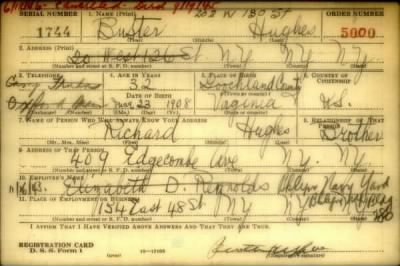 Cancelled - Died 9/19/45
203 W 130 St
SERIAL NUMBER 1. NAME (Print) ORDER NUMBER
1744 Buster Hughes 5000
(First) (Middle) (Last)
2. ADDRESS (Print)
N.Y. N.Y.
(Number and street or R. F. D. number) (Town) (County) (State)
3. TELEPHONE 4. AGE IN YEARS 5. PLACE OF BIRTH 6. COUNTRY OF CITIZENSHIP
32 County
DATE OF BIRTH
Mar. 23 1908 Virginia U.S.
(Exchange) (No.) (Mo.) (Day) (Yr.) (State or country)
7. NAME OF PERSON WHO WILL ALWAYS KNOW YOUR ADDRESS 8. RELATIONSHIP OF THAT PERSON
Richard Hughes Brother
(Mr., Mrs., Miss) (First) (Middle) (Last)
9. ADDRESS OF THAT PERSON
409 Edgecombe Ave N.Y. N.Y.
(Number and street or R. F. D. number) (Town) (County) (State)
10. EMPLOYER'S NAME
Elizabeth D. Reynolds Navy Yard
11. PLACE OF EMPLOYMENT OR BUSINESS
154 East 48 St N.Y.
(Number and street or R. F. D. number) (Town) (County) (State)
I AFFIRM THAT I HAVE VERIFIED ABOVE ANSWERS AND THAT THEY ARE TRUE.
REGISTRATION CARD
D. S. S. Form 1 16-17105